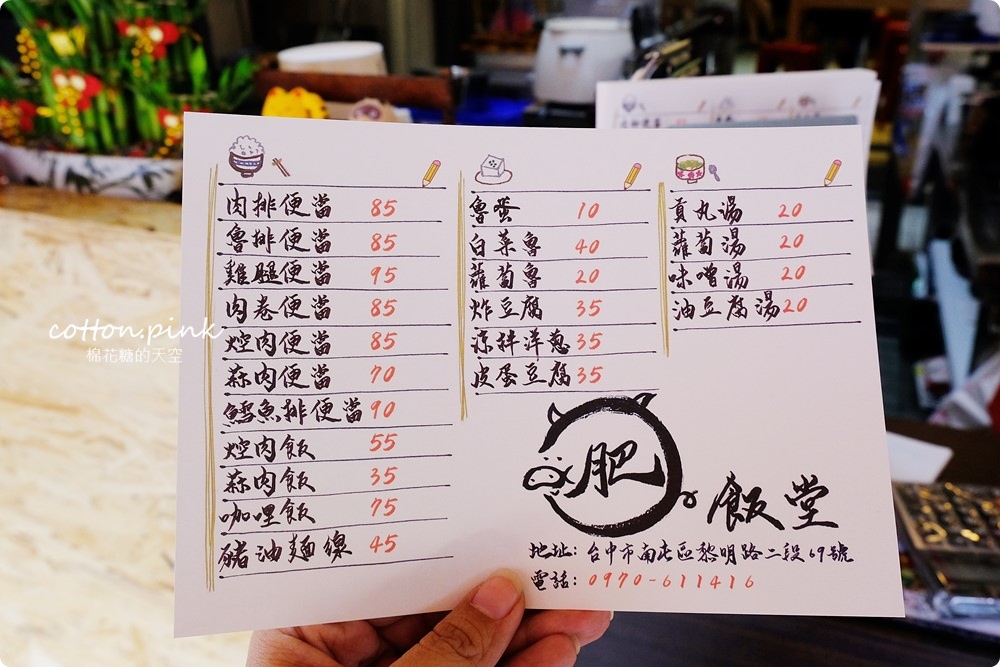 肉排便當 85
魯排便當 85
雞腿便當 95
肉卷便當 85
焢肉便當 85
蒜肉便當 70
鱈魚排便當 90
焢肉飯 55
蒜肉飯 35
咖哩飯 75
豬油麵線 45
魯蛋 10
白菜魯 40
蘿蔔魯 20
炸豆腐 35
涼拌洋蔥 35
皮蛋豆腐 35
貢丸湯 20
蘿蔔湯 20
味噌湯 20
油豆腐湯 20
肥飯堂
地址：台中市南屯區黎明路二段69號
電話：0970-611416
cotton.pink
棉花糖的天空